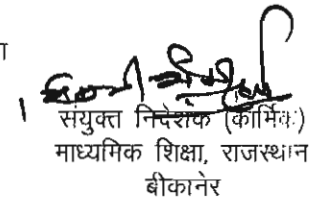 ।
संयुक्त निदेशक (कार्मिक)
माध्यमिक शिक्षा, राजस्थान
बीकानेर